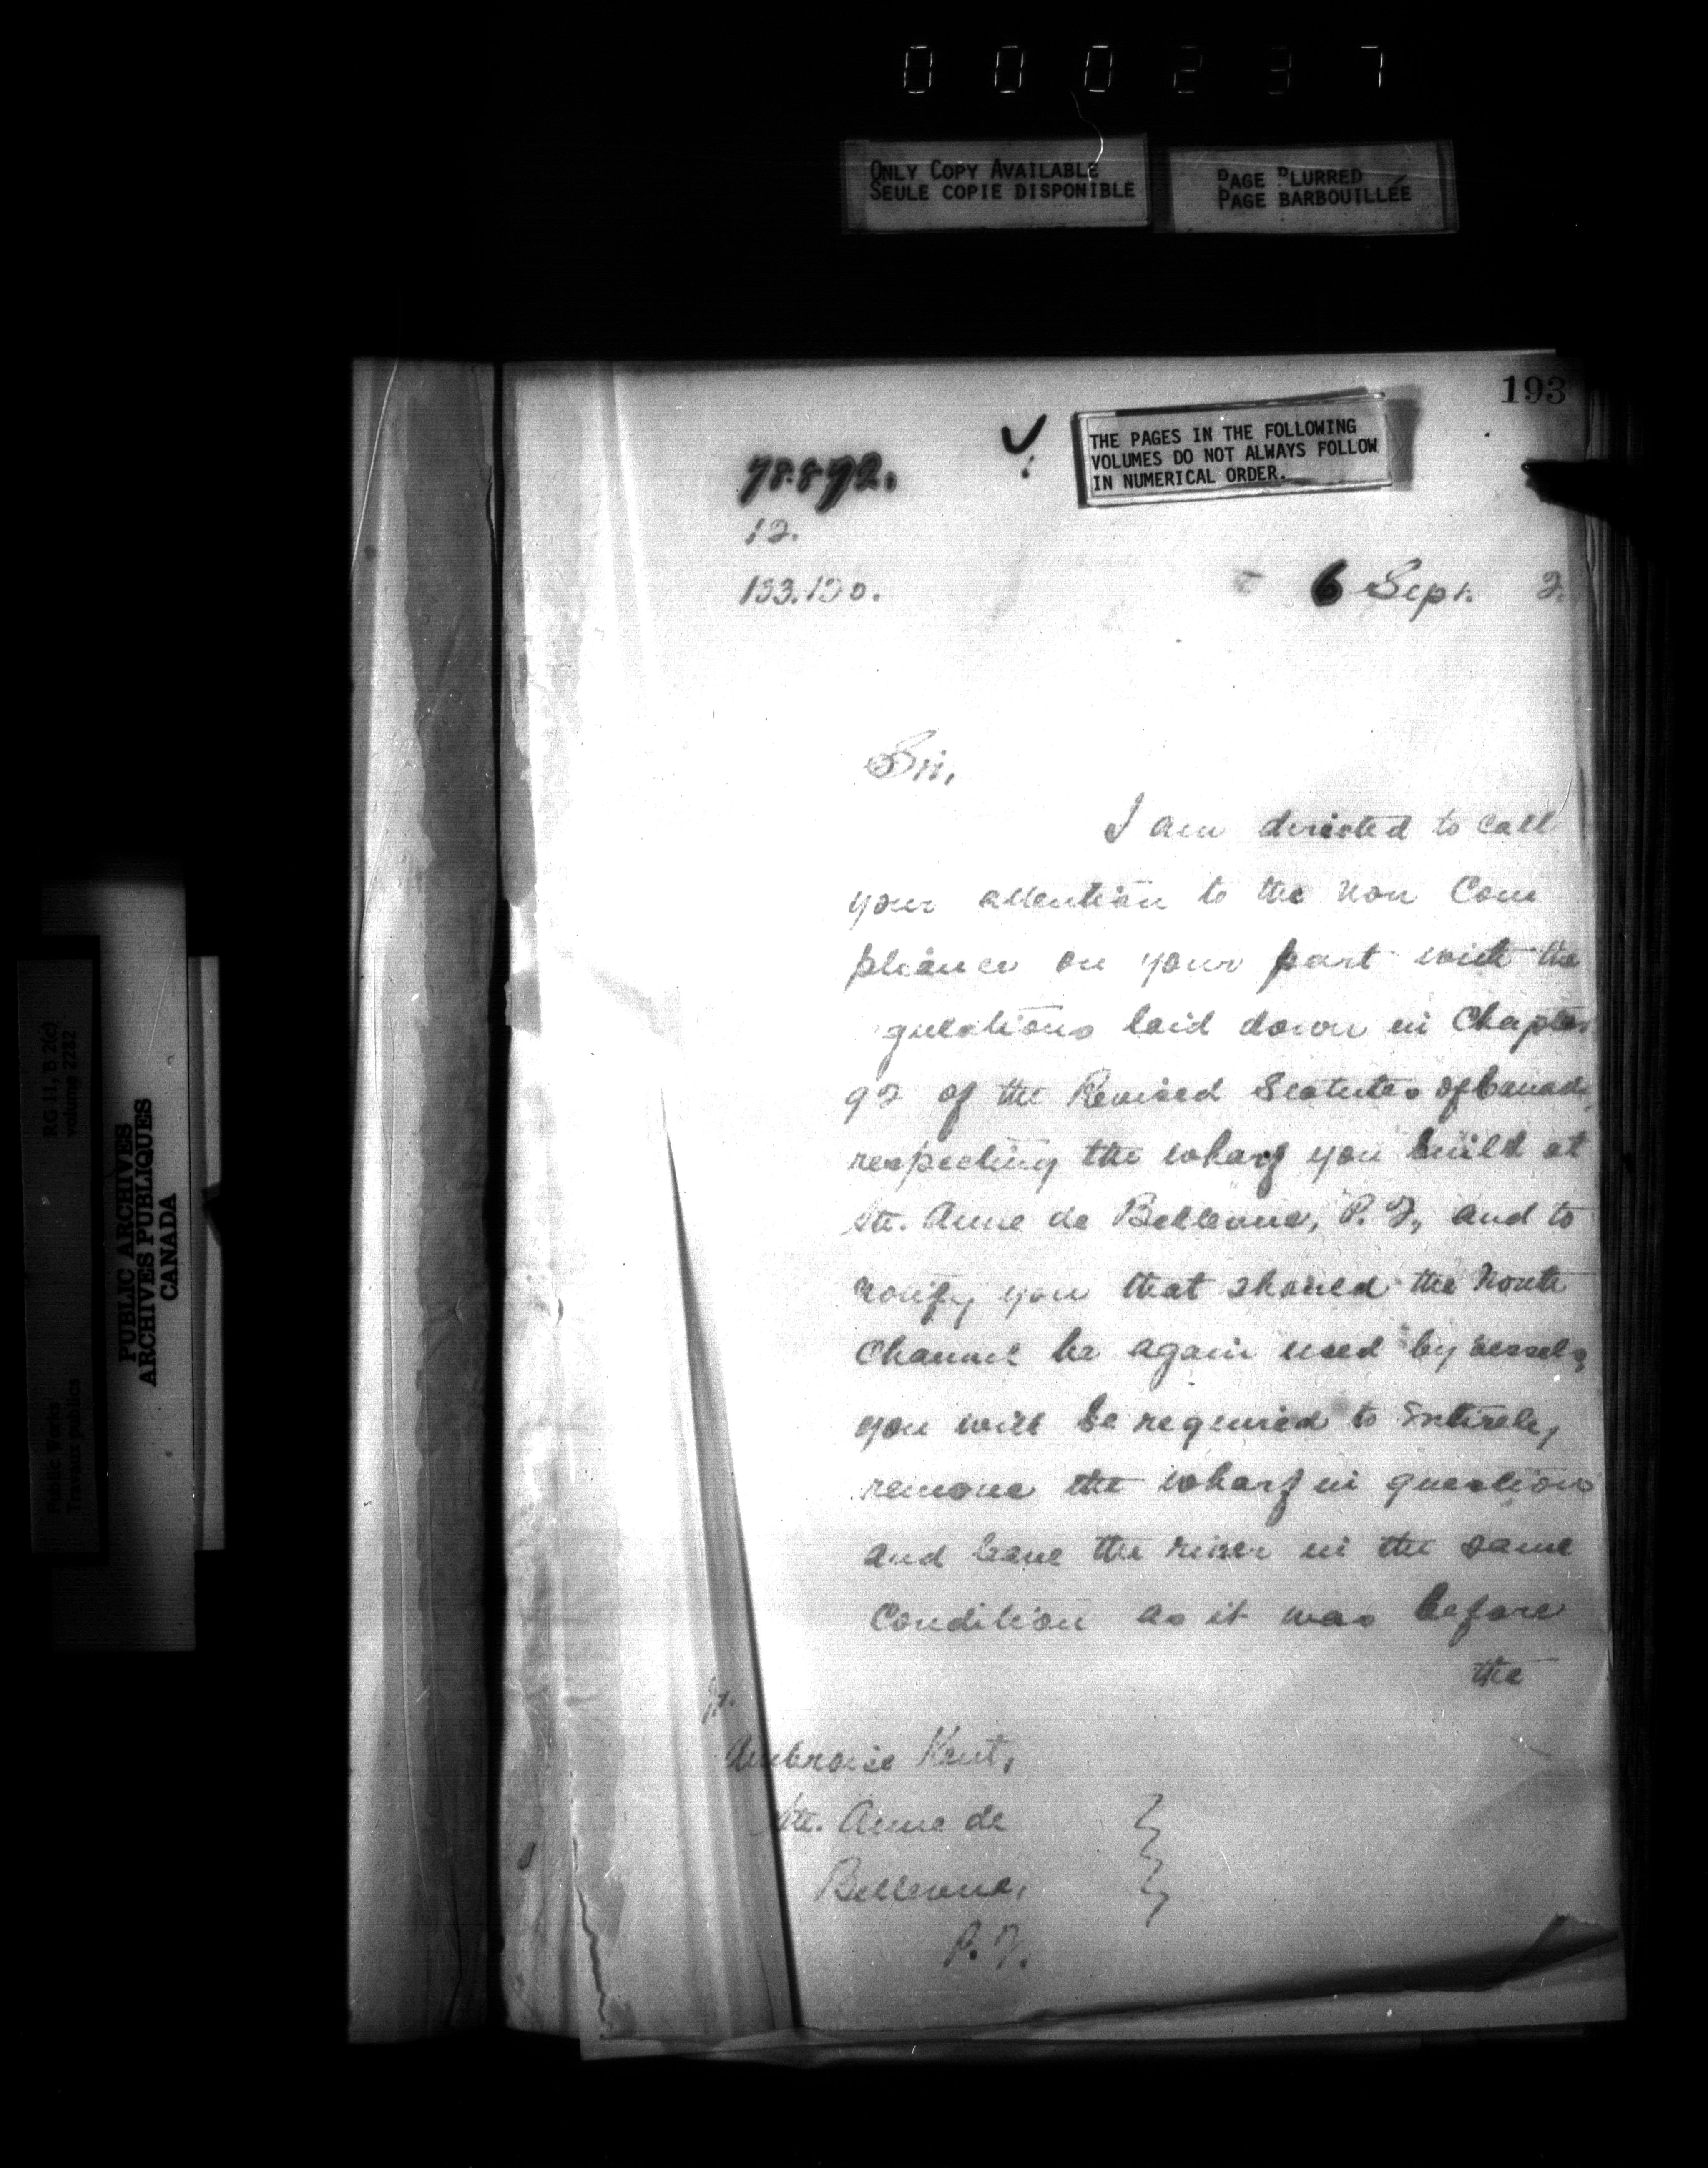 000237
ONLY COPY AVAILABLE
SEULE COPIE DISPONIBLE
PAGE BLURRED
PAGE BARBOUILLÉE
193
THE PAGES IN THE FOLLOWING
VOLUMES DO NOT ALWAYS FOLLOW
IN NUMERICAL ORDER.
78.872.
12.
133.120.
6 Sept. 2.
Sir,
I am directed to call
your attention to the non Com
pliance on your part with the
gulations laid down in Chapter
92 of the Revised Statutes of Canada,
respecting the wharf you build at
Ste. Anne de Bellevue, P. Q., and to
notify you that should the North
Channel be again used by vessels,
you will be required to entirely
remove the wharf in question
and leave the river in the same
Condition as it was before
the
Ambroise Kent,
Ste. Anne de
Bellevue,
P. Q.
RG 11, B 2(c)
volume 2282
Public Works
Travaux publics
PUBLIC ARCHIVES
ARCHIVES PUBLIQUES
CANADA